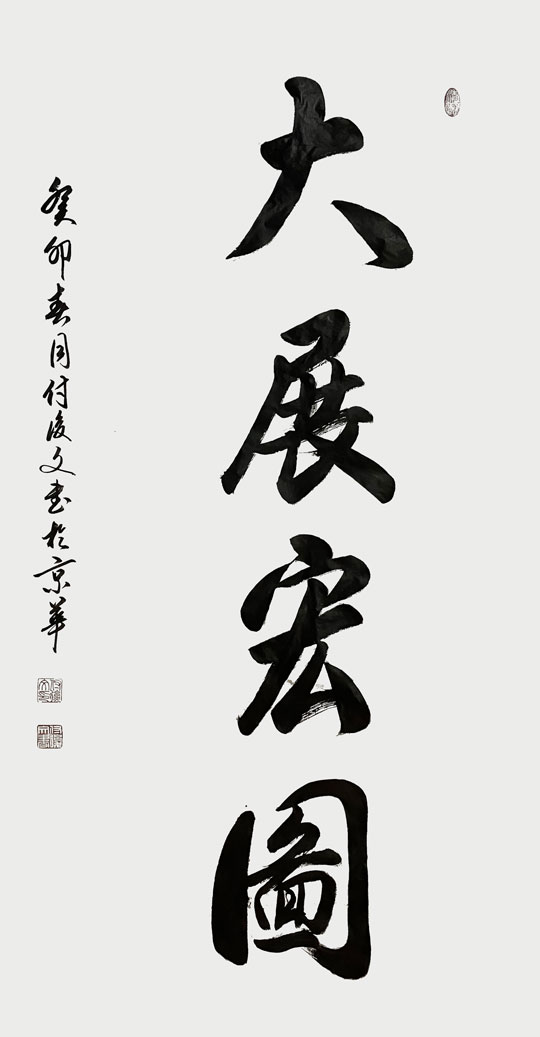 大展宏圖
癸卯春月付俊文書於京華